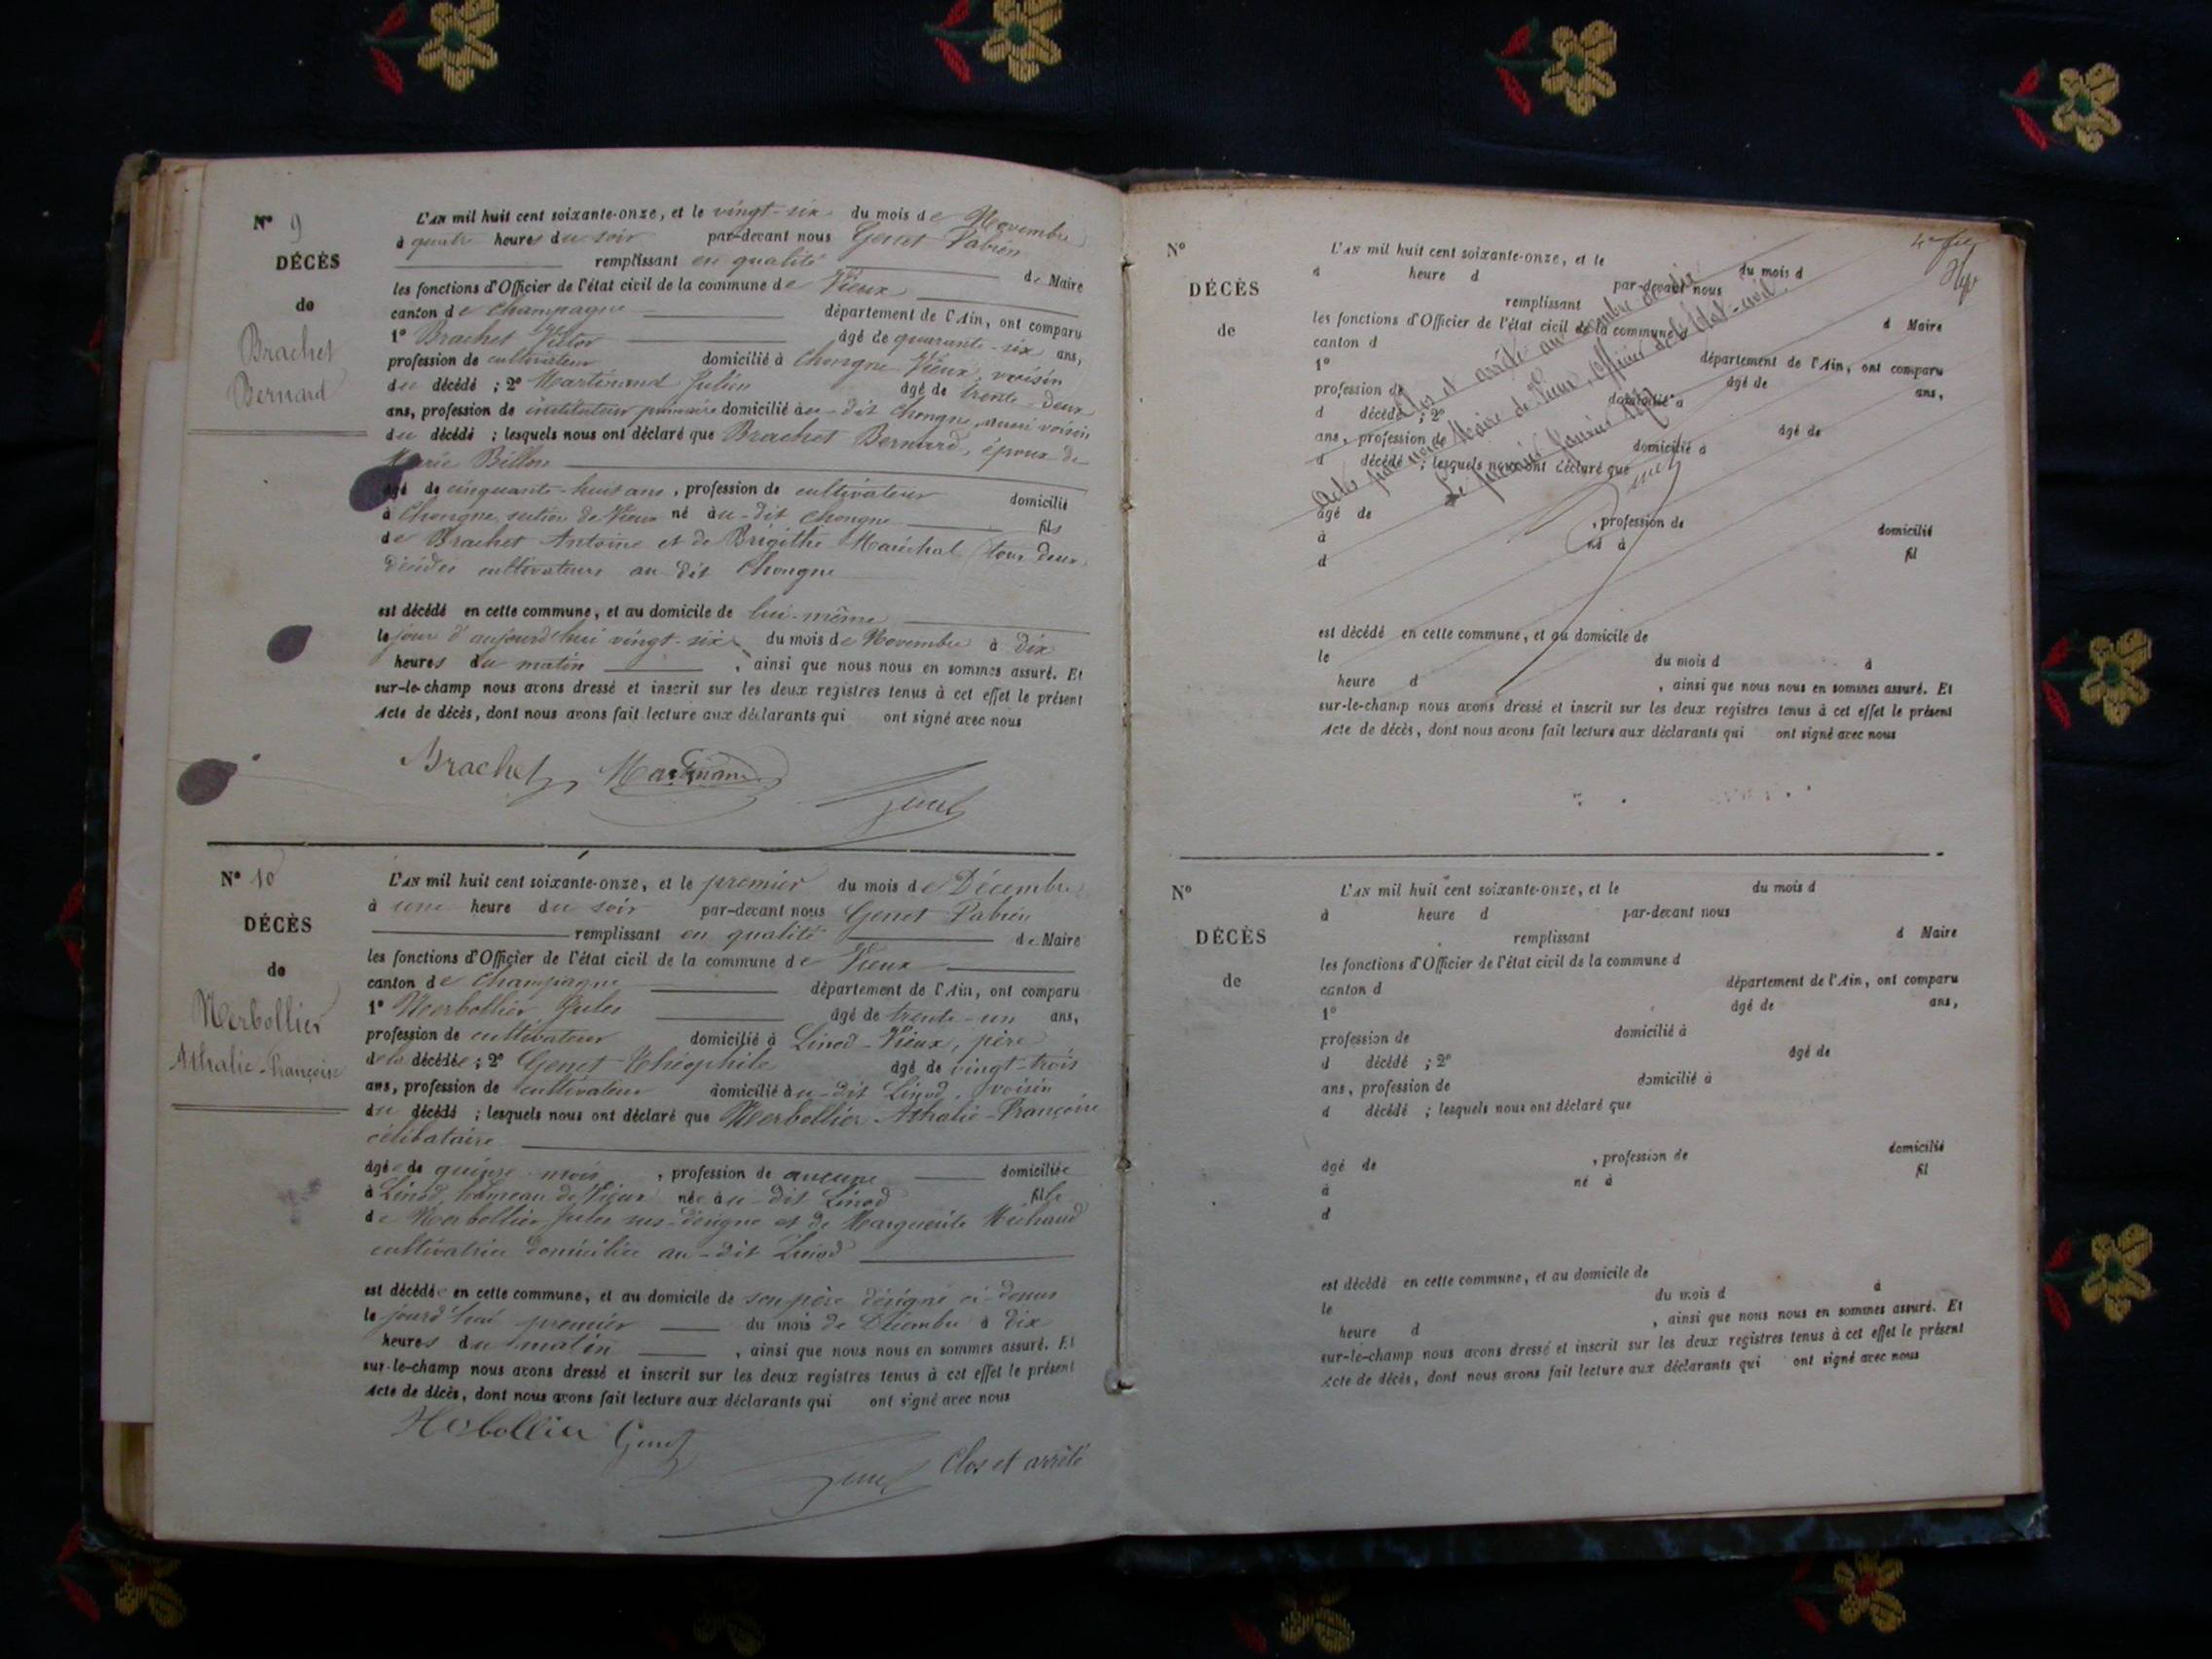 N° 9
DÉCÈS
de
Brachet
Bernard
L'AN mil huit cent soixante-onze, et le vingt-six du mois de Novembre
à quatre heures du soir par-devant nous Genet Fabien
remplissant en qualité de Maire
les fonctions d'Officier de l'état civil de la commune de Vieux
canton de Champagne département de l'Ain, ont comparu
1° Brachet Victor âgé de quarante-six ans,
profession de cultivateur domicilié à Chongne Vieux, voisin
du décédé ; 2° Martinand Julien âgé de trente-deux
ans, profession de instituteur primaire domicilié au-dit Chongne, aussi voisin
du décédé ; lesquels nous ont déclaré que Brachet Bernard, époux de
Marie Billon
âgé de cinquante-huit ans, profession de cultivateur domicilié
à Chongne, section de Vieux né au-dit Chongne fils
de Brachet Antoine et de Brigitte Maréchal tous deux
décédés cultivateurs au dit Chongne
est décédé en cette commune, et au domicile de lui-même
le jour d'aujourd'hui vingt-six du mois de Novembre à dix
heures du matin , ainsi que nous nous en sommes assuré. Et
sur-le-champ nous avons dressé et inscrit sur les deux registres tenus à cet effet le présent
Acte de décès, dont nous avons fait lecture aux déclarants qui ont signé avec nous
Brachet Martinand Genet
N° 10
DÉCÈS
de
Herbollier
Athalie-Françoise
L'AN mil huit cent soixante-onze, et le premier du mois de Décembre
à une heure du soir par-devant nous Genet Fabien
remplissant en qualité de Maire
les fonctions d'Officier de l'état civil de la commune de Vieux
canton de Champagne département de l'Ain, ont comparu
1° Herbollier Jules âgé de trente-un ans,
profession de cultivateur domicilié à Linod-Vieux, père
de la décédée ; 2° Genet Théophile âgé de vingt-trois
ans, profession de cultivateur domicilié au-dit Linod, voisin
du décédé ; lesquels nous ont déclaré que Herbollier Athalie-Françoise
célibataire
âgée de quinze mois , profession de aucune domiciliée
à Linod, hameau de Vieux née au-dit Linod fille
de Herbollier Jules sus-désigné et de Marguerite Michaud
cultivatrice domiciliée au-dit Linod
est décédée en cette commune, et au domicile de son père désigné ci-dessus
le jourd'hui premier du mois de Décembre à dix
heures du matin , ainsi que nous nous en sommes assuré. Et
sur-le-champ nous avons dressé et inscrit sur les deux registres tenus à cet effet le présent
Acte de décès, dont nous avons fait lecture aux déclarants qui ont signé avec nous
Herbollier Genet
Genet Clos et arrêté
N°
DÉCÈS
de
L'AN mil huit cent soixante-onze, et le du mois d
à heure d par-devant nous
remplissant d Maire
les fonctions d'Officier de l'état civil de la commune
canton d département de l'Ain, ont comparu
1° âgé de ans,
profession de domicilié à
d décédé ; 2° âgé de
ans, profession de domicilié à
d décédé ; lesquels nous ont déclaré que
Clos et arrêté au nombre de dix
Actes par nous Maire de Vieux, Officier de l'état-civil.
Le premier Janvier 1872
âgé de , profession de domicilié
à né à fil
d
est décédé en cette commune, et au domicile de
le du mois d à
heure d , ainsi que nous nous en sommes assuré. Et
sur-le-champ nous avons dressé et inscrit sur les deux registres tenus à cet effet le présent
Acte de décès, dont nous avons fait lecture aux déclarants qui ont signé avec nous
N°
DÉCÈS
de
L'AN mil huit cent soixante-onze, et le du mois d
à heure d par-devant nous
remplissant d Maire
les fonctions d'Officier de l'état civil de la commune d
canton d département de l'Ain, ont comparu
1° âgé de ans,
profession de domicilié à
d décédé ; 2° âgé de
ans, profession de domicilié à
d décédé ; lesquels nous ont déclaré que
âgé de , profession de domicilié
à né à fil
d
est décédé en cette commune, et au domicile de
le du mois d à
heure d , ainsi que nous nous en sommes assuré. Et
sur-le-champ nous avons dressé et inscrit sur les deux registres tenus à cet effet le présent
Acte de décès, dont nous avons fait lecture aux déclarants qui ont signé avec nous